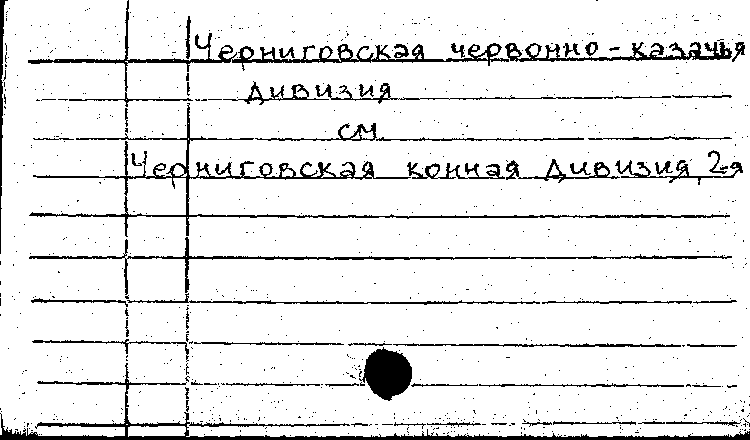 Черниговская червонно-казачья
дивизия
см.
Черниговская конная дивизия, 2-я